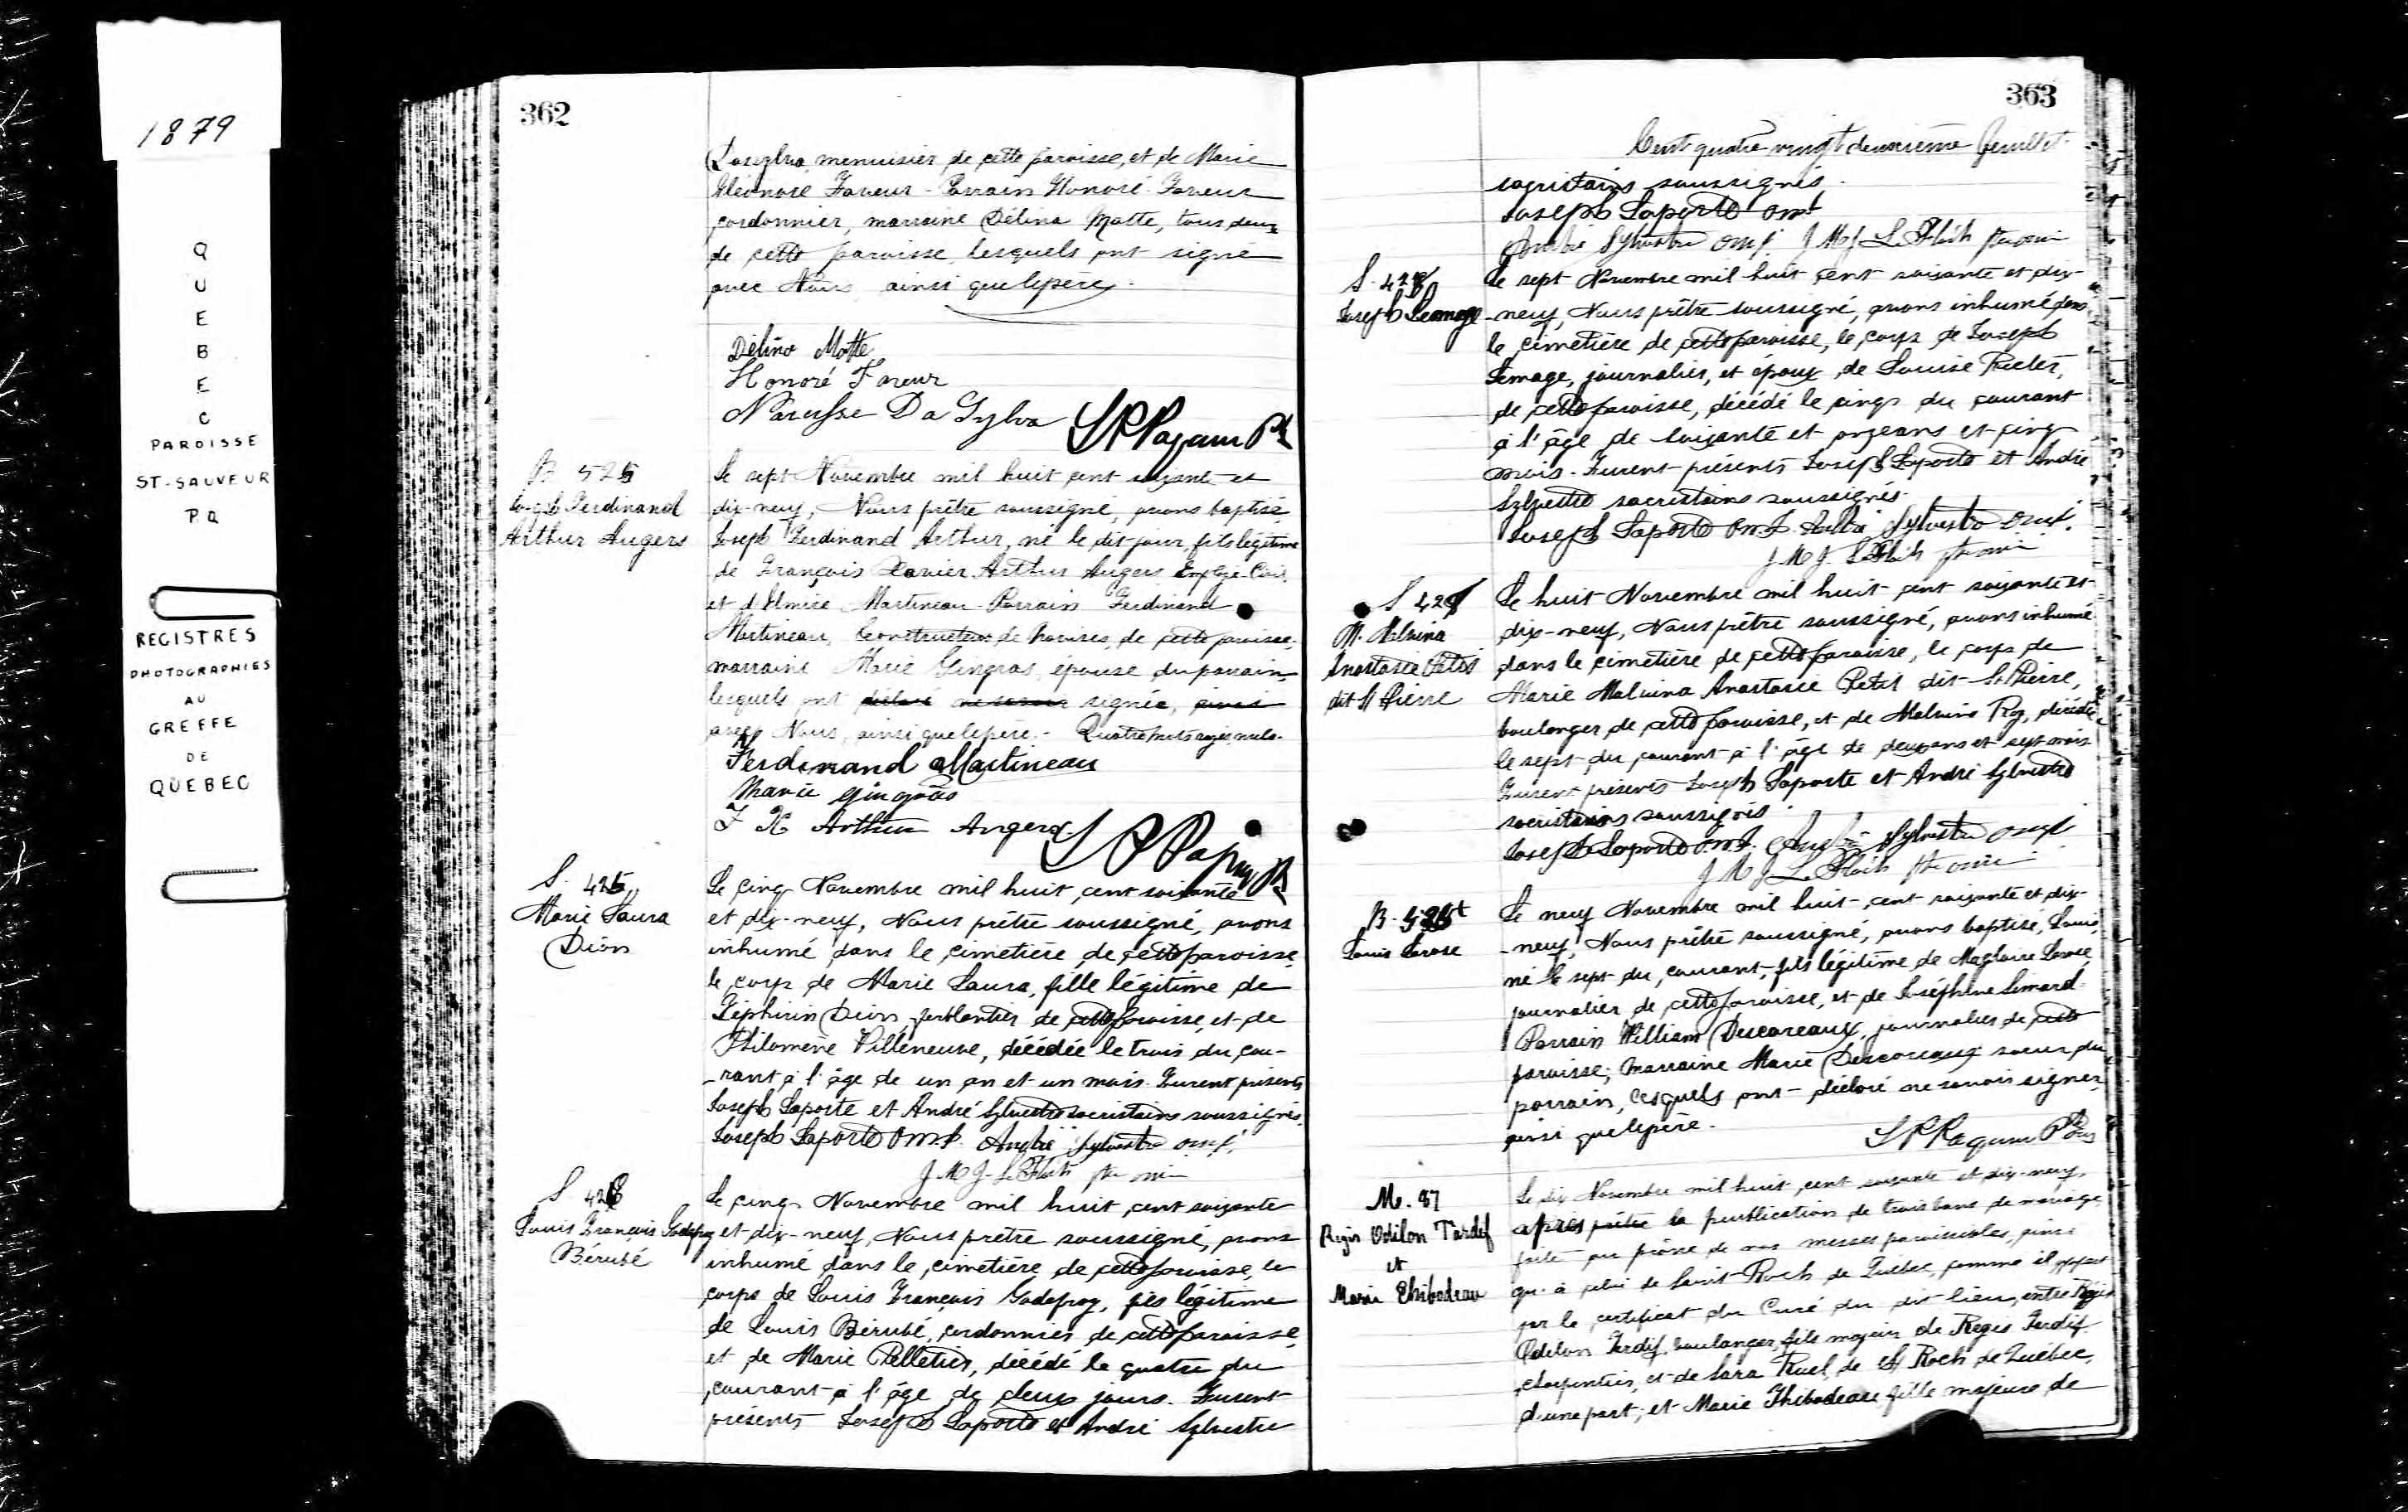 1879
QUEBEC
PAROISSE
ST-SAUVEUR
P.Q
REGISTRES
PHOTOGRAPHIES
AU
GREFFE
DE
QUEBEC
362
menuisier de cette paroisse, et de Marie
Eléonore Faveur - Parrain Honoré Faveur
cordonnier, marraine Délina Matte, tous deux
de cette paroisse lesquels ont signé
avec Nous ainsi que le père.
Délina Matte
Honoré Faveur
Narcisse Da Sylva
B 525
Joseph Ferdinand
Arthur Angers
Le sept Novembre mil huit cent soixante et
dix-neuf, Nous prêtre soussigné, avons baptisé
Joseph Ferdinand Arthur, né le dit jour, fils légitime
de François Xavier Arthur Angers Employé Civil
et d'Elmire Martineau - Parrain Ferdinand
Martineau, Constructeur de Navires, de cette paroisse,
marraine Marie Gingras, épouse du parrain,
lesquels ont déclaré ne savoir signer,
avec Nous, ainsi que le père. - Quatre mots rayés nuls.
Ferdinand Martineau
Marie Gingras
F X Arthur Angers
S. 425
Marie Laura
Dion
Le cinq Novembre mil huit cent soixante
et dix-neuf, Nous prêtre soussigné, avons
inhumé dans le cimetière de cette paroisse,
le corps de Marie Laura, fille légitime de
Zéphirin Dion ferblantier de cette paroisse, et de
Philomène Villeneuve, décédée le trois du cou-
-rant à l'âge de un an et un mois. Furent présents
Joseph Laporte et André Sylvestre sacristains soussignés.
Joseph Laporte O.M.I. André Sylvestre omi.
J. M. J. Le Floch ptre omi
S 426
Louis François Godefroy
Bérubé
Le cinq Novembre mil huit cent soixante
et dix-neuf, Nous prêtre soussigné, avons
inhumé dans le cimetière de cette paroisse, le
corps de Louis François Godefroy, fils légitime
de Louis Bérubé, cordonnier de cette paroisse,
et de Marie Pelletier, décédé le quatre du
courant à l'âge de deux jours. Furent
présents Joseph Laporte et André Sylvestre
363
Cent quatre vingt deuxième feuillet
sacristains soussignés.
Joseph Laporte omi
André Sylvestre omi J M J Le Floch ptre omi
S. 427
Joseph Lemage
Le sept Novembre mil huit cent soixante et dix-
-neuf, Nous prêtre soussigné, avons inhumé dans
le cimetière de cette paroisse, le corps de Joseph
Lemage, journalier, et époux de Louise
de cette paroisse, décédé le cinq du courant
à l'âge de soixante et onze ans et cinq
mois. Furent présents Joseph Laporte et André
Sylvestre sacristains soussignés.
Joseph Laporte O.M.I. André Sylvestre omi.
J. M. J. Le Floch ptre omi
S 428
M. Malvina
Anastasie Petit
dit St Pierre
Le huit Novembre mil huit cent soixante et
dix-neuf, Nous prêtre soussigné, avons inhumé
dans le cimetière de cette paroisse, le corps de
Marie Malvina Anastasie Petit dit St Pierre,
boulanger de cette paroisse, et de Malvina Roy, décédée
le sept du courant à l'âge de deux ans et sept mois
Furent présents Joseph Laporte et André Sylvestre
sacristains soussignés.
Joseph Laporte O.M.I. André Sylvestre omi
J M J Le Floch ptre omi
B. 526
Louis Larose
Le neuf Novembre mil huit cent soixante et dix-
-neuf, Nous prêtre soussigné, avons baptisé, Louis,
né le sept du courant, fils légitime de Magloire Larose,
journalier de cette paroisse, et de Joséphine Simard
Parrain William Descareaux, journalier de cette
paroisse; marraine Marie Descareaux soeur du
parrain, lesquels ont déclaré ne savoir signer,
ainsi que le père.
M. 87
Régis Odilon Tardif
et
Marie Thibodeau
Le dix Novembre mil huit cent soixante et dix-neuf,
après la publication de trois bans de mariage,
faite au prône de nos messes paroissiales, ainsi
qu'à celui de Saint-Roch de Québec, comme il appert
par le certificat du Curé du dit lieu, entre Régis
Odilon Tardif, boulanger, fils majeur de Régis Tardif
charpentier, et de Sara Ruel, de St Roch de Québec,
d'une part; et Marie Thibodeau fille majeure de